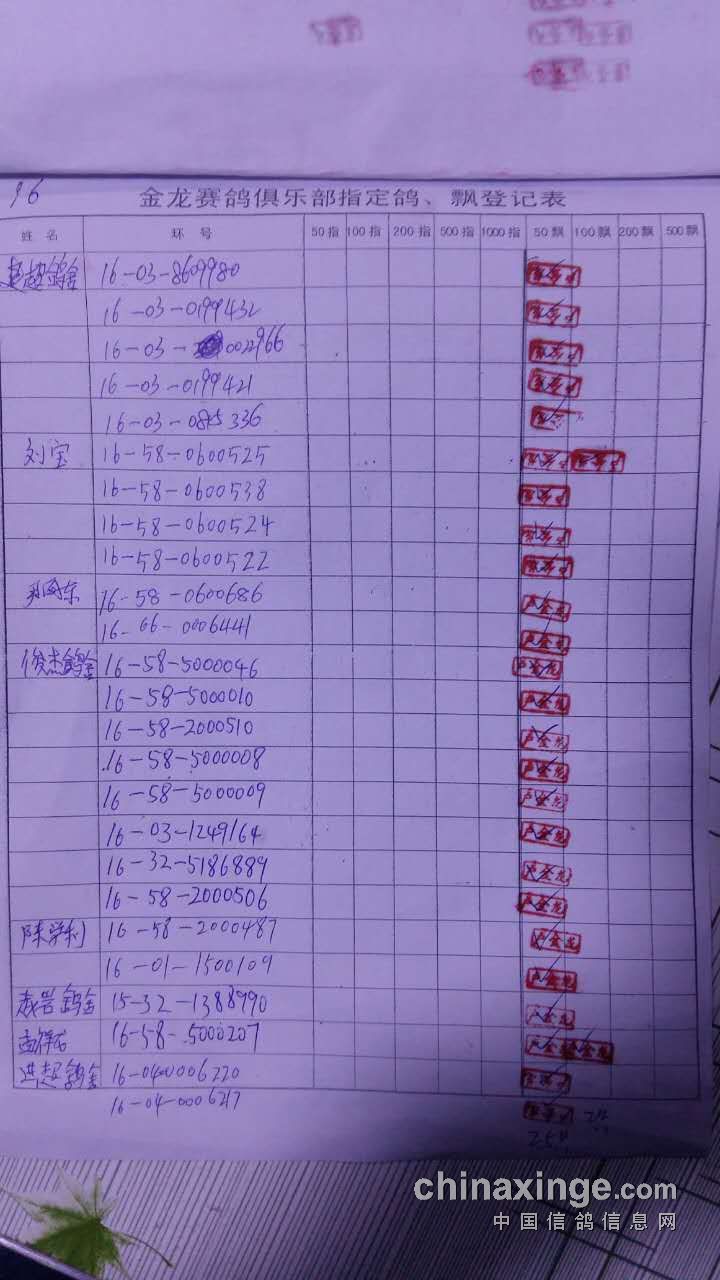 96
金龙赛鸽俱乐部指定鸽、飘登记表
姓 名 环 号 50指 100指 200指 500指 1000指 50飘 100飘 200飘 500飘
16-03-8609980
16-03-0199432
16-03-0022966
16-03-0199421
16-03-0815336
刘宝 16-58-0600525
16-58-0600538
16-58-0600524
16-58-0600522
16-58-0600686 卢金龙
16-66-0006441 卢金龙
俊杰鸽舍 16-58-5000046 卢金龙
16-58-5000010 卢金龙
16-58-2000510 卢金龙
16-58-5000008 卢金龙
16-58-5000009 卢金龙
16-03-1249164 卢金龙
16-32-5186889 卢金龙
16-58-2000506 卢金龙
陈学利 16-58-2000487 卢金龙
16-01-1500109 卢金龙
鸽舍 15-32-1388990 卢金龙
16-58-5000207 卢金龙 卢金龙
进超鸽舍 16-04-0006220
16-04-0006217
chinaxinge.com
中国信鸽信息网